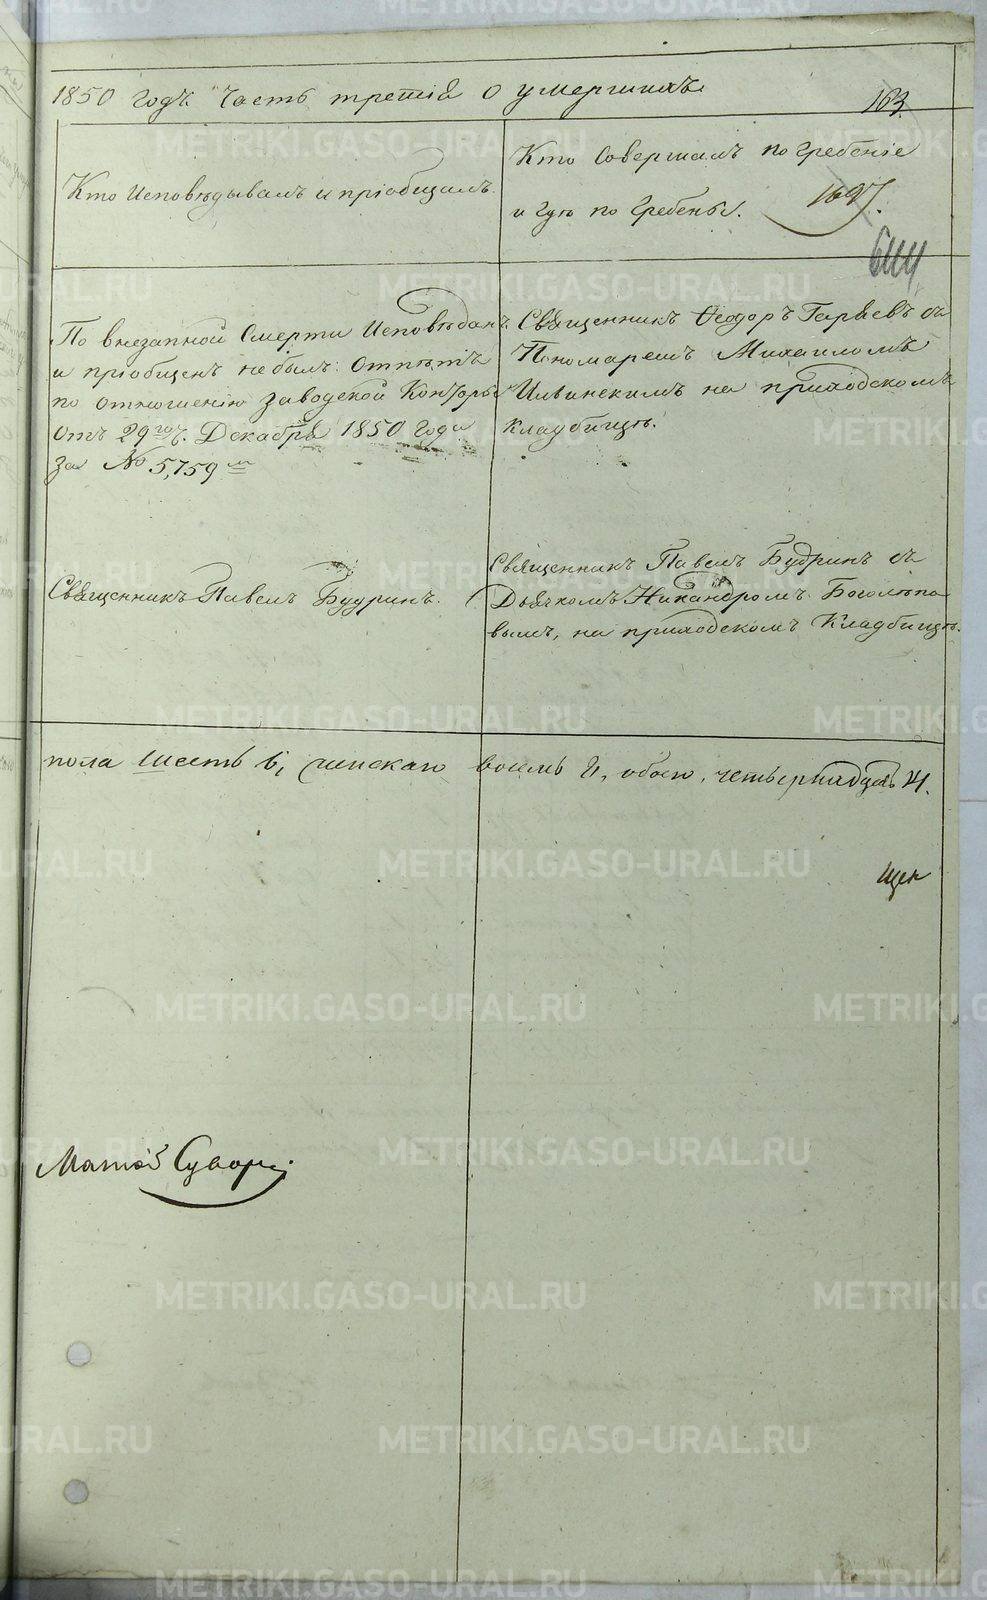 1850 годъ Часть третія о умершихъ
163.
Кто Исповѣдывалъ и пріобщалъ.
Кто Совершалъ погребеніе
и гдѣ погребены.
1697.
По внезапной Смерти Исповѣданъ
и пріобщенъ не былъ: Отпѣтъ
по отношенію заводской Конторы
отъ 29го ч. Декабря 1850 года
за № 5,759м
Священникъ Ѳеодоръ Гаряевъ съ
Пономаремъ Михаиломъ
Ильинскимъ на приходскомъ
кладбищѣ.
Священникъ Павелъ Будринъ.
Священникъ Павелъ Будринъ съ
Дьячкомъ Никандромъ Боголѣпо
вымъ, на приходскомъ Кладбищѣ.
пола шесть 6, женскаго восемь 8, обоего, четырнадцать 14.
METRIKI.GASO-URAL.RU